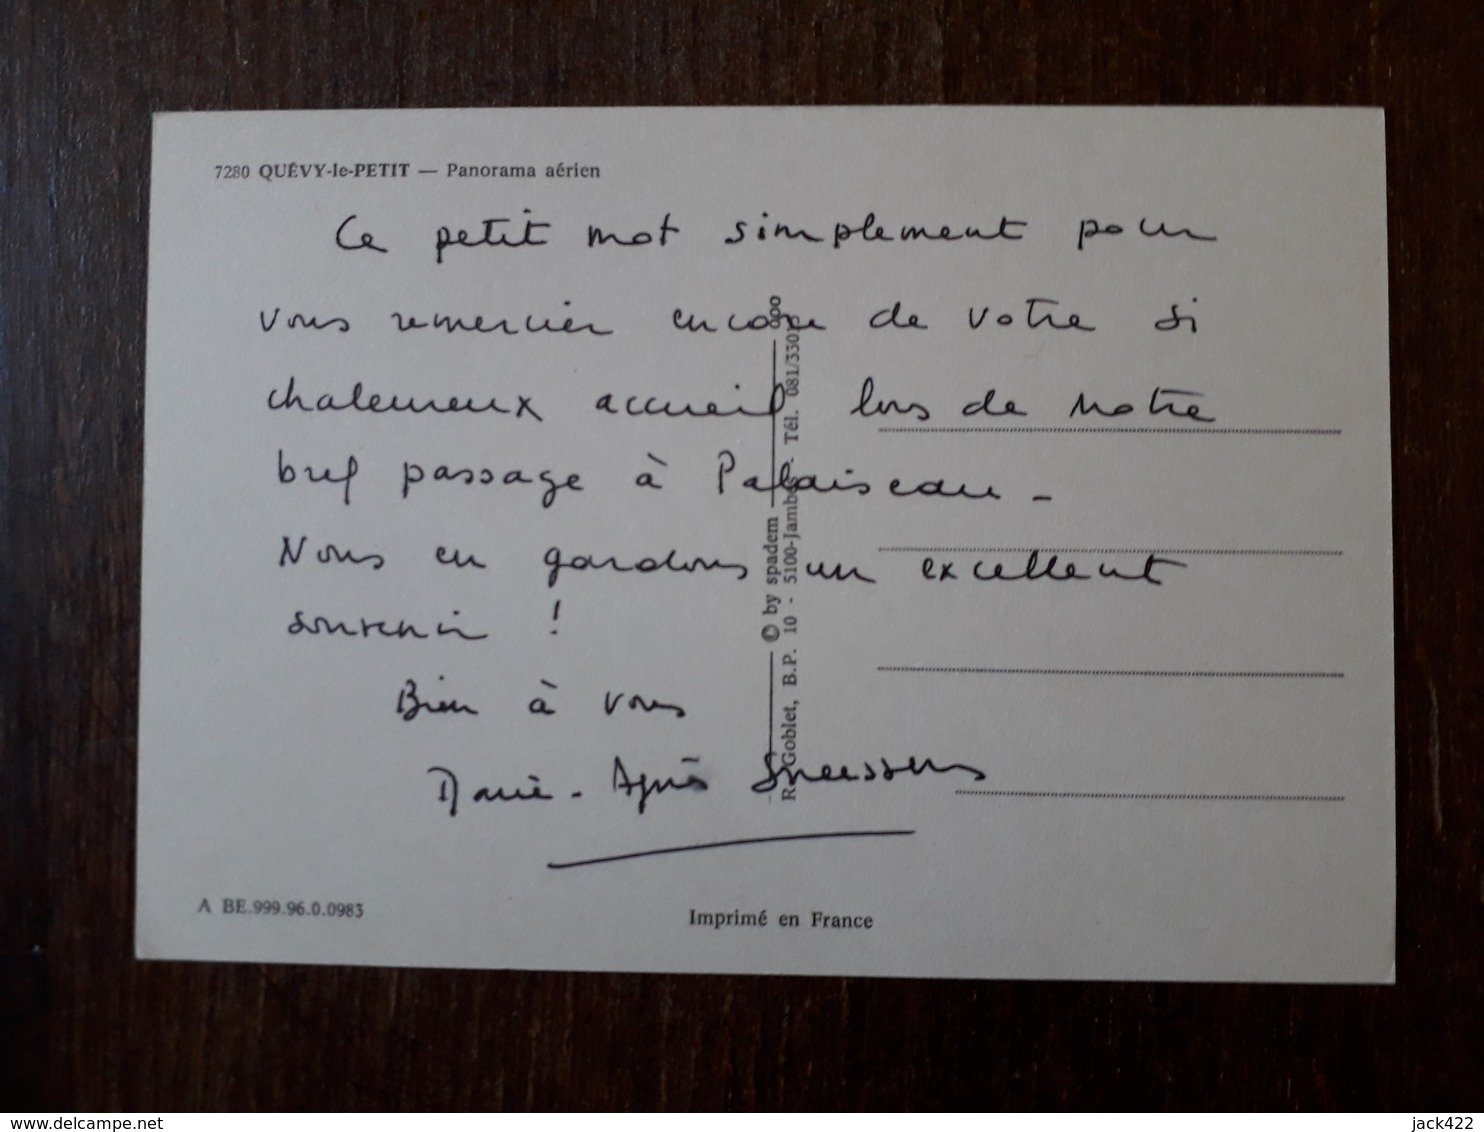 7280 QUÉVY-le-PETIT — Panorama aérien
Ce petit mot simplement pour
vous remercier encore de votre si
chaleureux accueil lors de notre
bref passage à Palaiseau -
Nous en gardons un excellent
souvenir !
Bien à vous
Marie-Agnès
© by spadem
Goblet, B.P. 10 - 5100-Jambes - Tél. 081/330
A BE.999.96.0.0983
Imprimé en France
delcampe.net
jack422